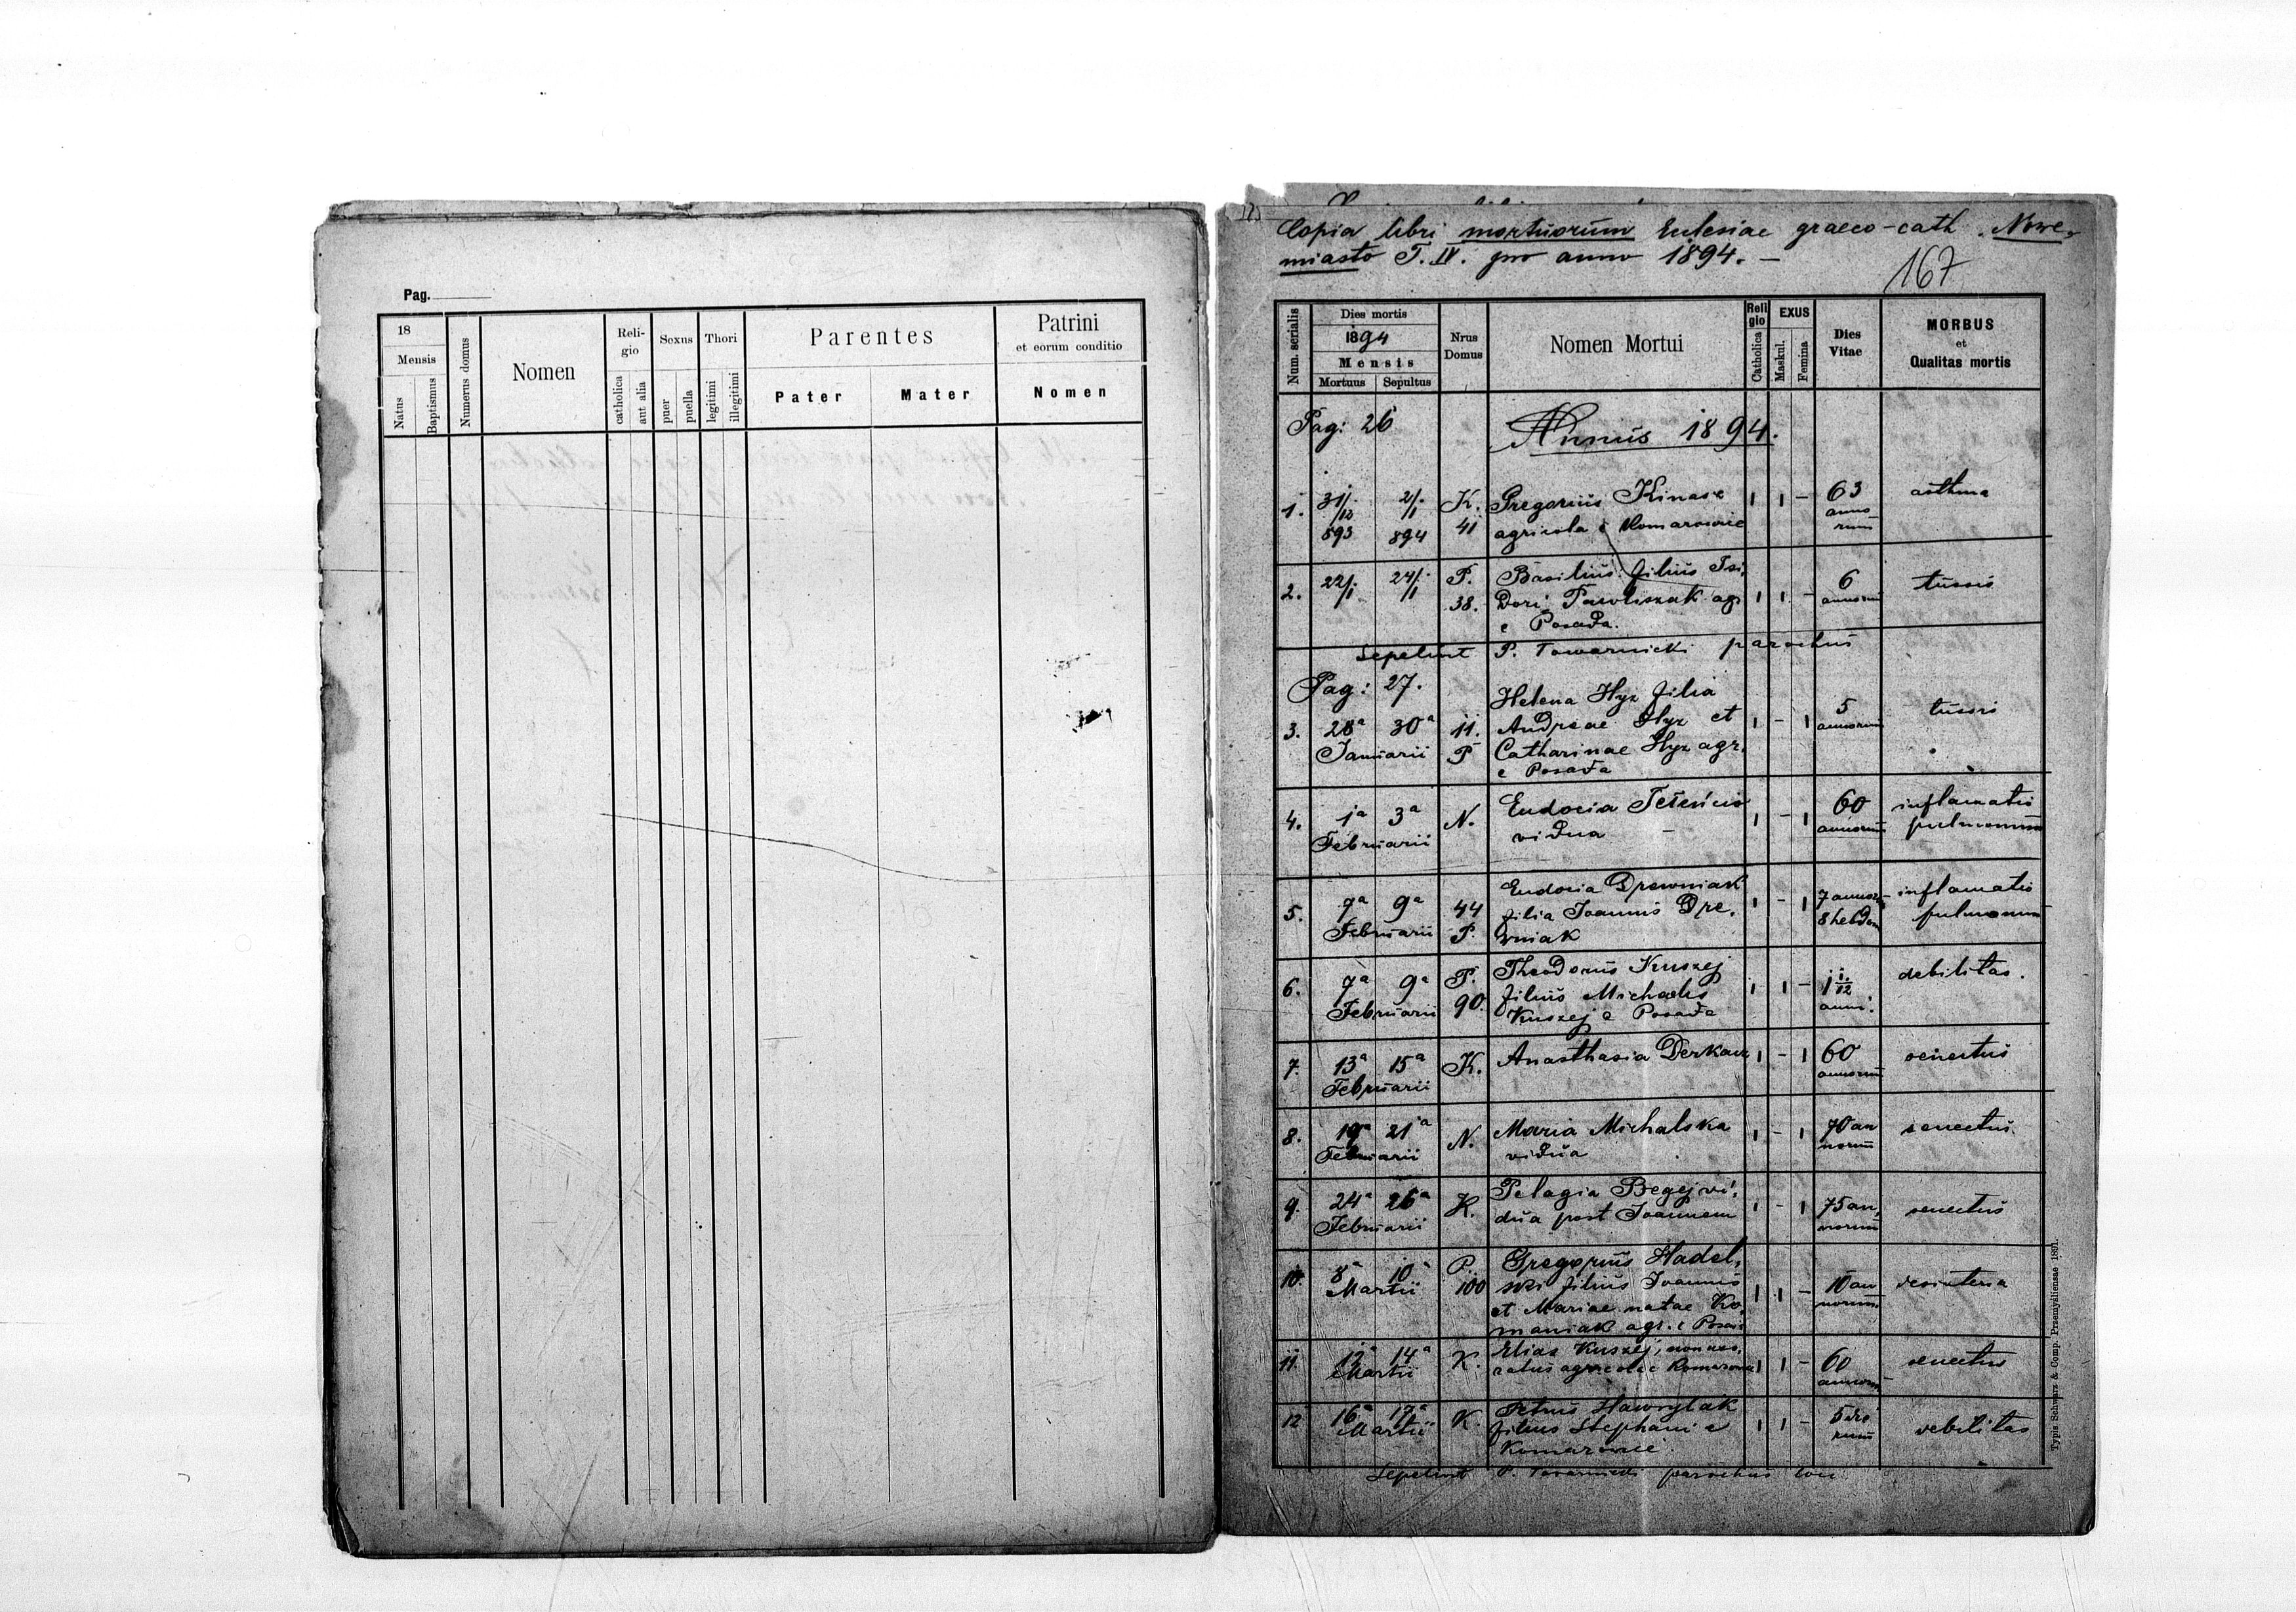 Pag.
18
Mensis
Natus
Baptismus
Numerus domus
Nomen
Reli-
gio
catholica
aut alia
Sexus
puer
puella
Thori
legitimi
illegitimi
Parentes
Pater
Mater
Patrini
et eorum conditio
Nomen
Copia libri mortuorum Eclesiae graeco-cath. Nowe-
miasto T. IV. pro anno 1894. -
167
Num. serialis
Dies mortis
1894
Mensis
Mortuus Sepultus
Nrus
Domus
Nomen Mortui
Reli
gio
Catholica
EXUS
Maskul.
Femina
Dies
Vitae
MORBUS
et
Qualitas mortis
Pag: 26 Annus 1894.
1. 31/12 893 2/1 894 K. 41 Gregorius Kinasz 1 1 - 63 annorum asthma
agricola e Komarowice
2. 22/1 24/1 P. 38. Basilius filius Isi, 1 1 - 6 annorum tussis
dori Pawliszak agr
e Posada.
Sepelivit P. Towarnicki parochus
Pag: 27.
3. 28a 30a Januarii 11. P Helena Hyz filia 1 - 1 5 annorum tussis
Andreae Hyz et
Catharinae Hyz agr.
e Posada
4. 1a 3a Februarii N. Eudocia 1 - 1 60 annorum inflamatio
vidua - pulmonum
5. 7a 9a Februarii 44 P. Eudocia Drewniak 1 - 1 7 annor. 8 hebdom inflamatio
filia Joannis Dre, pulmonum
wniak
6. 7a 9a Februarii P. 90. Theodorus Kuszej 1 1 - 1 1/12 anni. debilitas.
filius Michaelis
Kuszej e Posada
7. 13a 15a Februarii K. Anasthasia Derkacz 1 - 1 60 annorum senectus
8. 19a 21a Februarii N. Maria Michalska 1 - 1 70 annorum senectus.
vidua
9. 24a 26a Februarii K. Pelagia Begej vi, 1 - 1 75 annorum senectus
dua post Joannem
10. 8a 10a Martii P. 100 Gregorius Hadel, 1 1 - 10 annorum
ski filius Joannis
et Mariae natae Ko,
maniak agr. e Posad
11. 12a 14a Martii K. Elias Kuszej, 1 1 - 60 annorum senectus
agricola e Komarowice
12 16a 17a Martii K. Petrus Hawrylak 1 1 - 5 dierum debilitas
filius Stephani e
Komarowice
Sepelivit P. Towarnicki parochus loci
Typis Schwarz & Comp. Praemysliensae 1891.